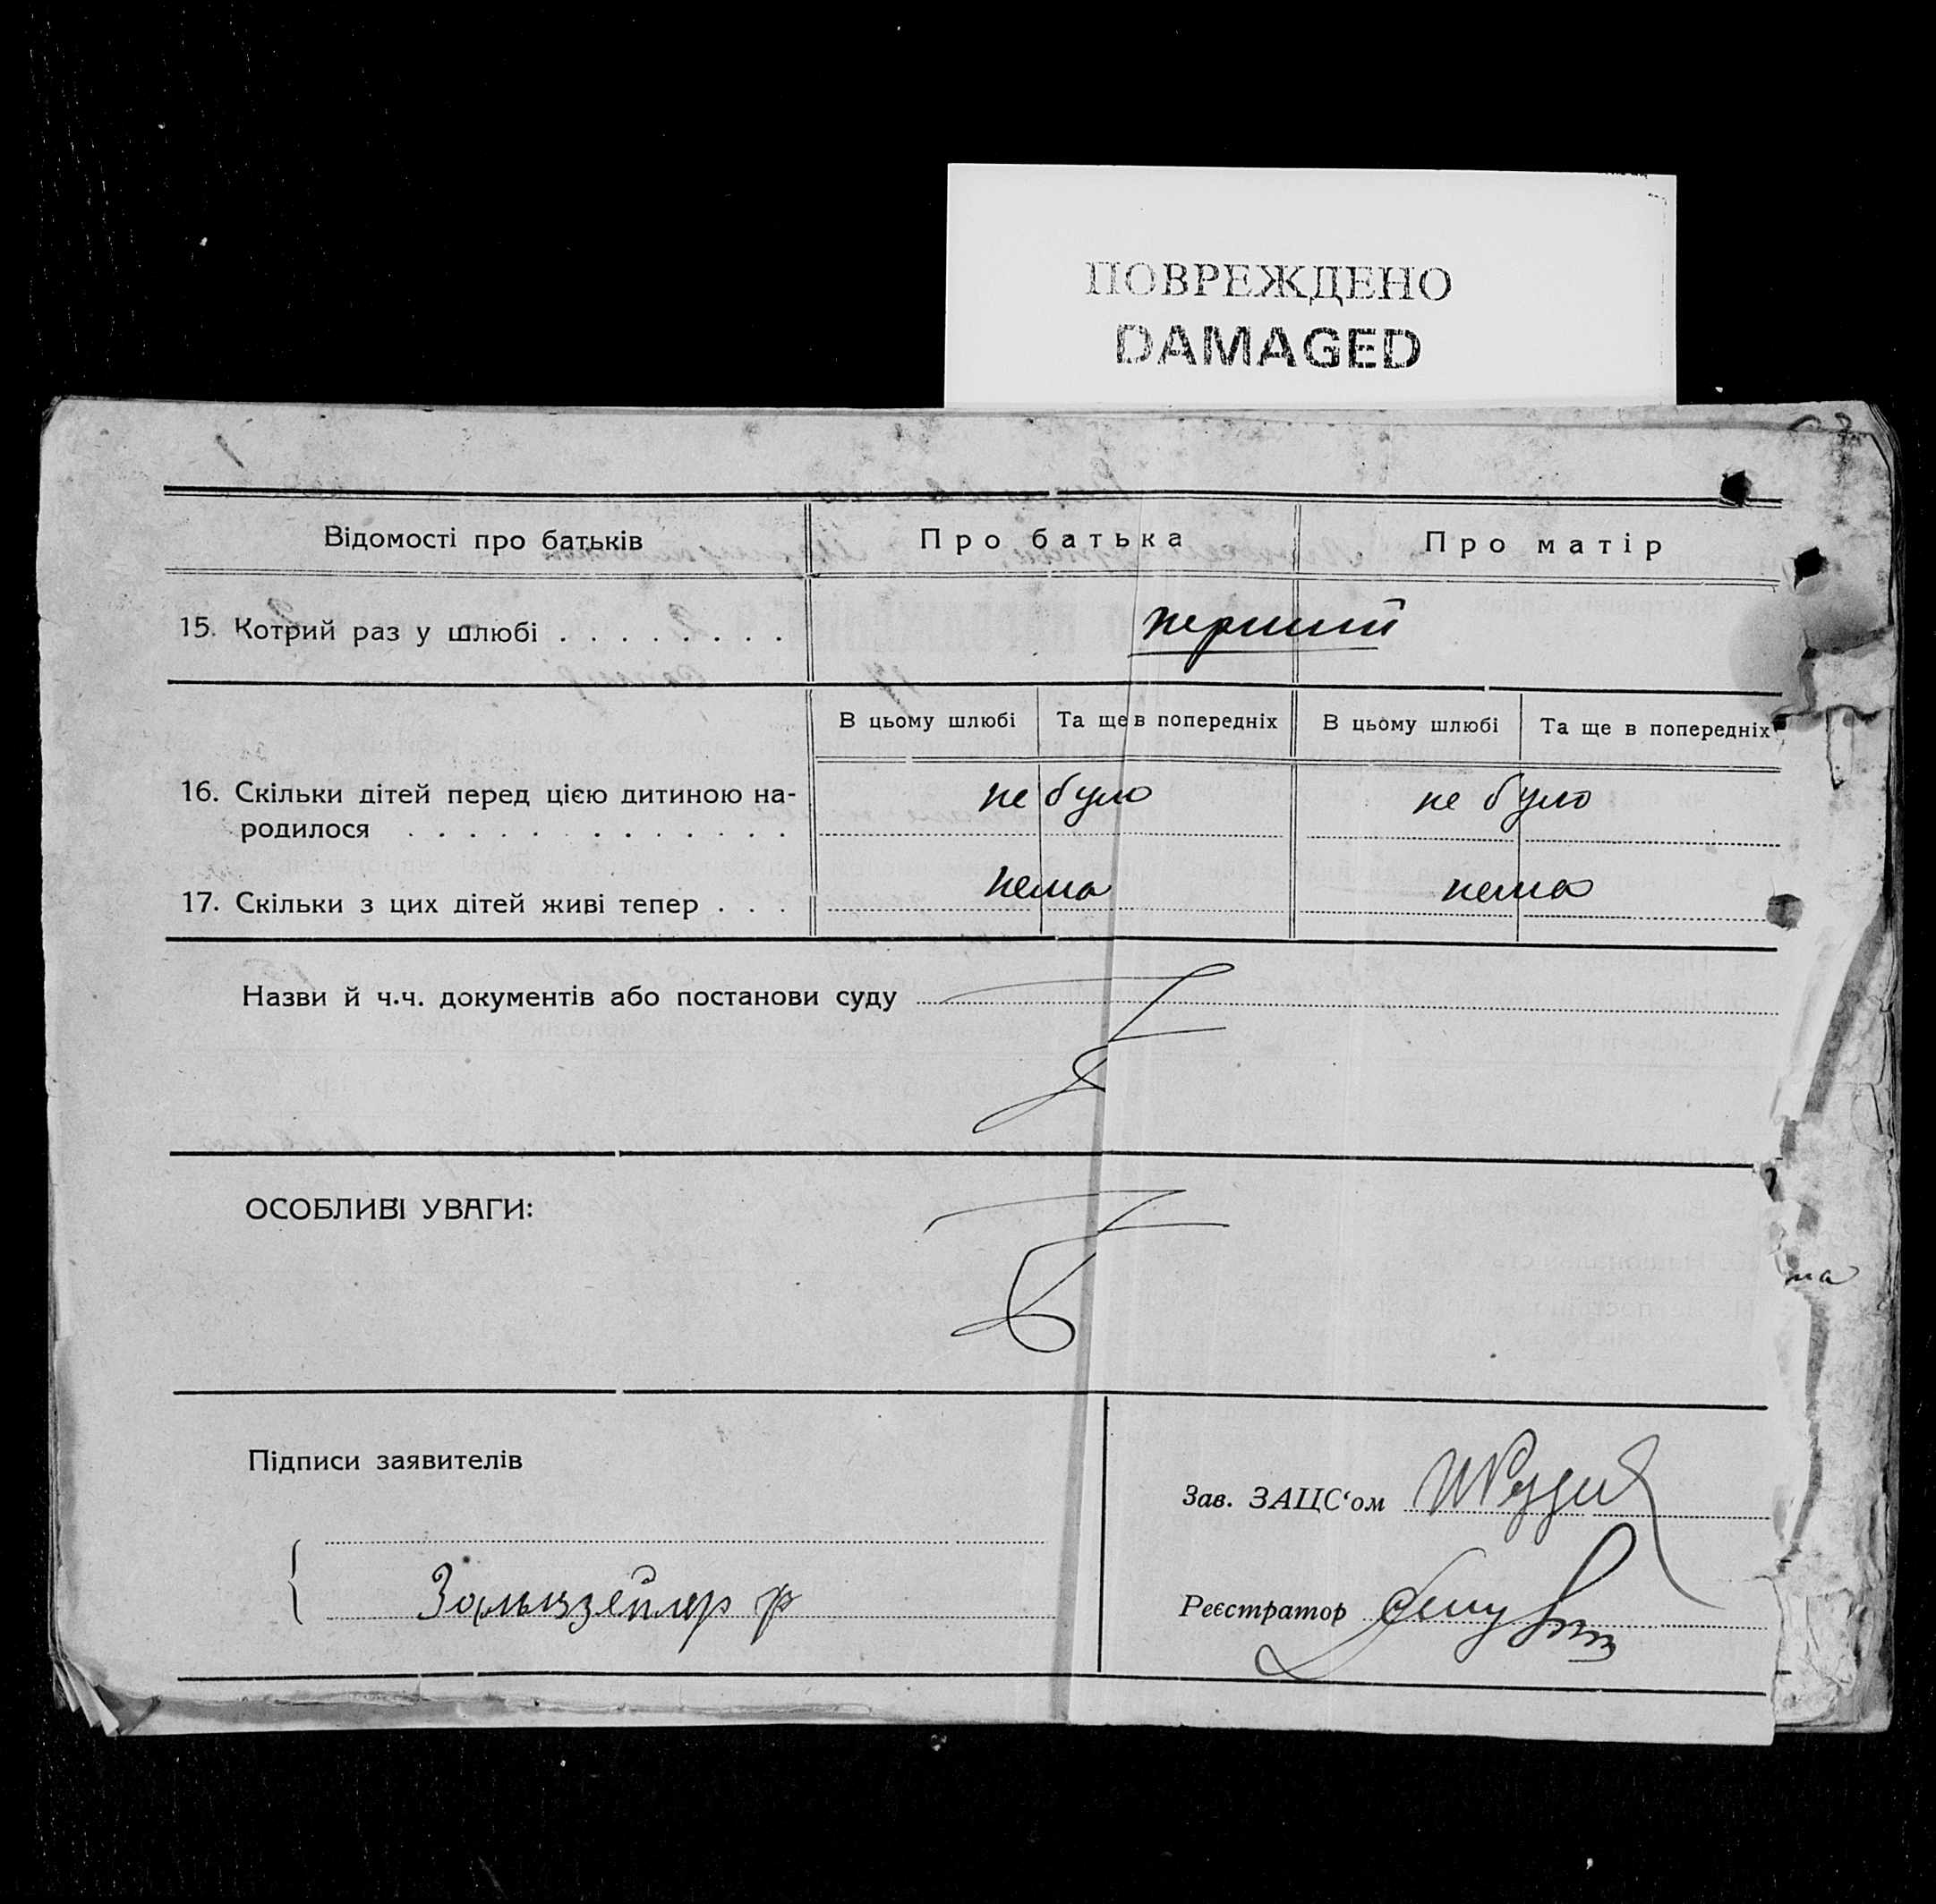 ПОВРЕЖДЕНО
DAMAGED
Відомості про батьків
Про батька
Про матір
15. Котрий раз у шлюбі . . . . . . . .
перший
В цьому шлюбі
Та ще в попередніх
В цьому шлюбі
Та ще в попередніх
16. Скільки дітей перед цією дитиною на-
родилося . . . . . . . . . . . . .
не було
не було
17. Скільки з цих дітей живі тепер . . .
нема
нема
Назви й ч.ч. документів або постанови суду
ОСОБЛИВІ УВАГИ:
Підписи заявителів
Зав. ЗАЦС‘ом
Зальцзейлер
Реєстратор